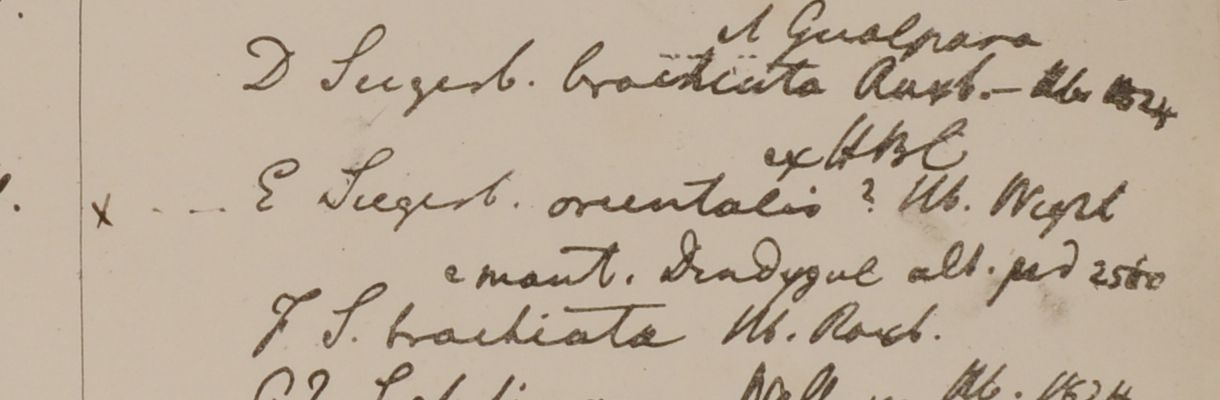 Goalpara
D Siegesb. brachiata Roxb. — Hb. 1824
ex HBC
x E Siegesb. orientalis? Hb. Wight
e mont. Dindygul alt. ped 2500
F S. brachiata Hb. Roxb.
Hb. 1824